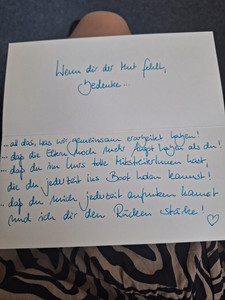 Wenn dir der Mut fehlt,
bedenke...
...all das, was wir gemeinsam erarbeitet haben!
...daß die Eltern noch mehr Angst haben als du!
...daß du im Kurs tolle MitstreiterInnen hast,
die du jederzeit ins Boot holen kannst!
...daß du mich jederzeit anfunken kannst
und ich dir den Rücken stärke! ♡